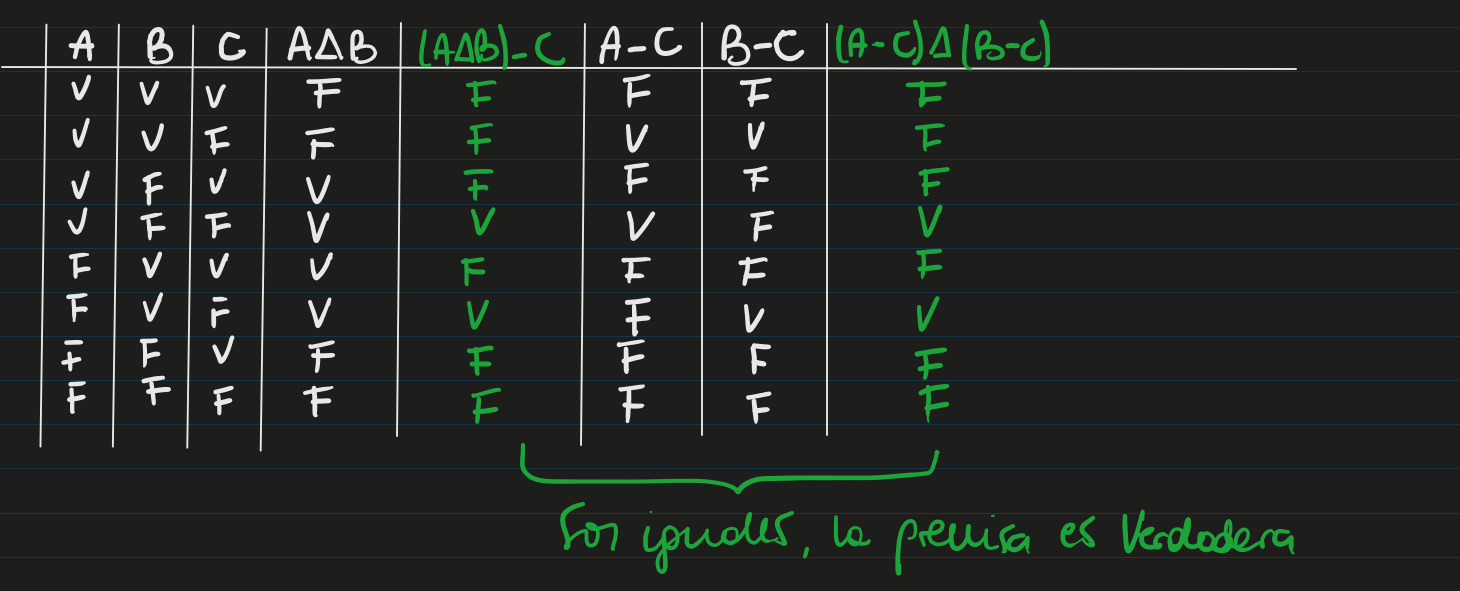 A B C A∆B (A∆B)-C A-C B-C (A-C)∆(B-C)
V V V F F F F F
V V F F F V V F
V F V V F F F F
V F F V V V F V
F V V V F F F F
F V F V V F V V
F F V F F F F F
F F F F F F F F
Son iguales, la premisa es Verdadera